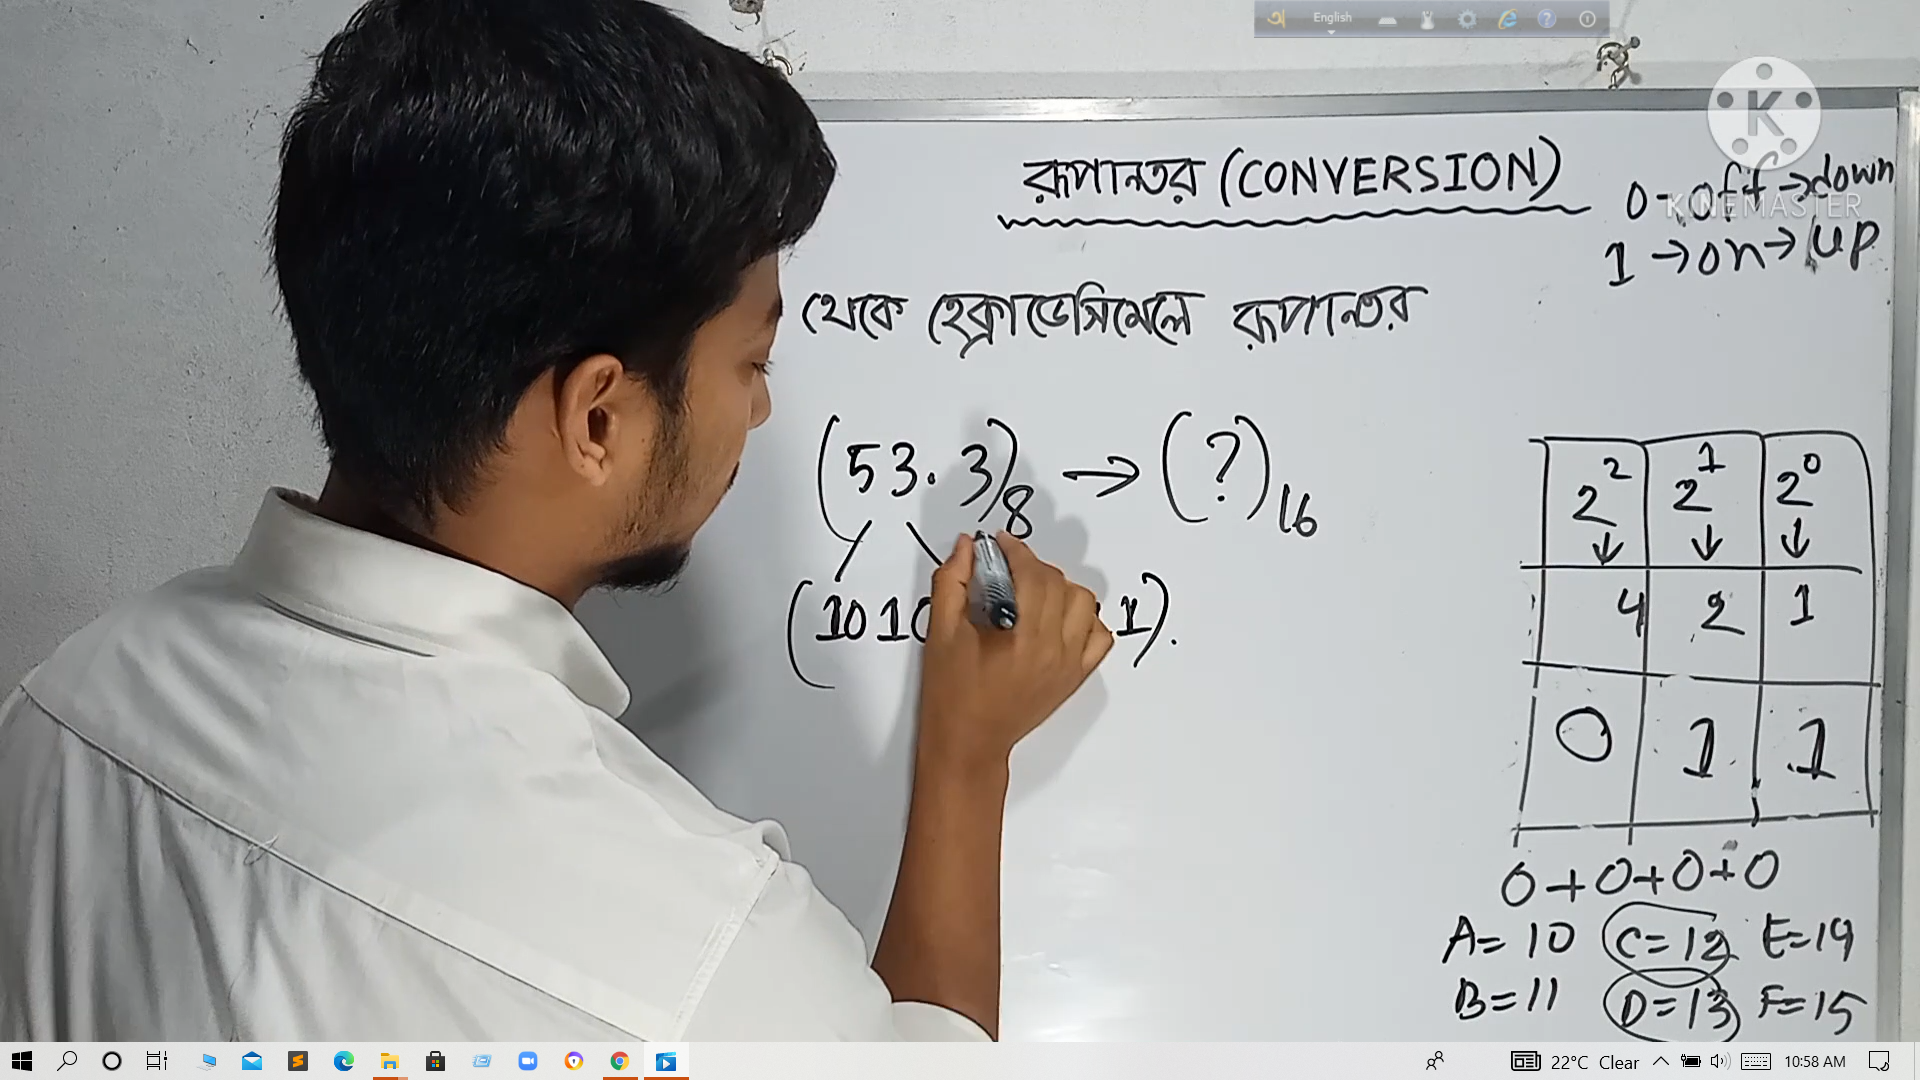 English
রূপান্তর (CONVERSION)
0→off→down
1→on→up
KINEMASTER
থেকে হেক্সাডেসিমেলে রূপান্তর
(53.3)8 → (?)16
(1010 1).
2² 2¹ 2⁰
↓ ↓ ↓
4 2 1
0 1 1
0+0+0+0
A=10 C=12 E=14
B=11 D=13 F=15
22°C Clear 10:58 AM